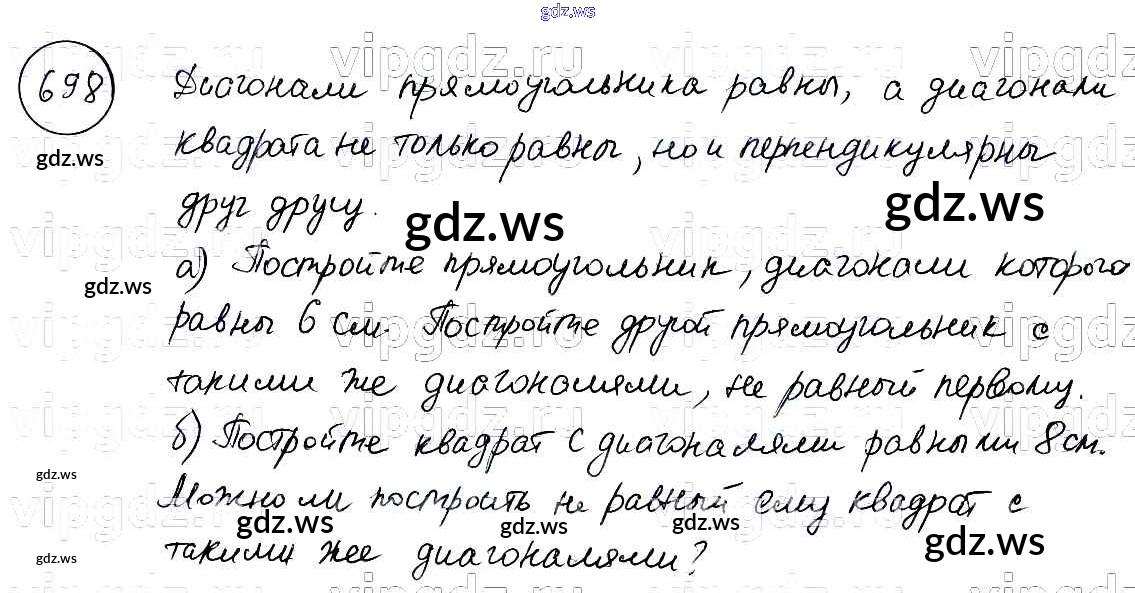 gdz.ws
698 Диагонали прямоугольника равны, а диагонали
квадрата не только равны, но и перпендикулярны
друг другу.
а) Постройте прямоугольник, диагонали которого
равны 6 см. Постройте другой прямоугольник с
такими же диагоналями, не равный первому.
б) Постройте квадрат с диагоналями равными 8 см.
Можно ли построить не равный ему квадрат с
такими же диагоналями?
gdz.ws
gdz.ws
gdz.ws
gdz.ws
gdz.ws
gdz.ws
gdz.ws
gdz.ws
gdz.ws
gdz.ws
vipgdz.ru